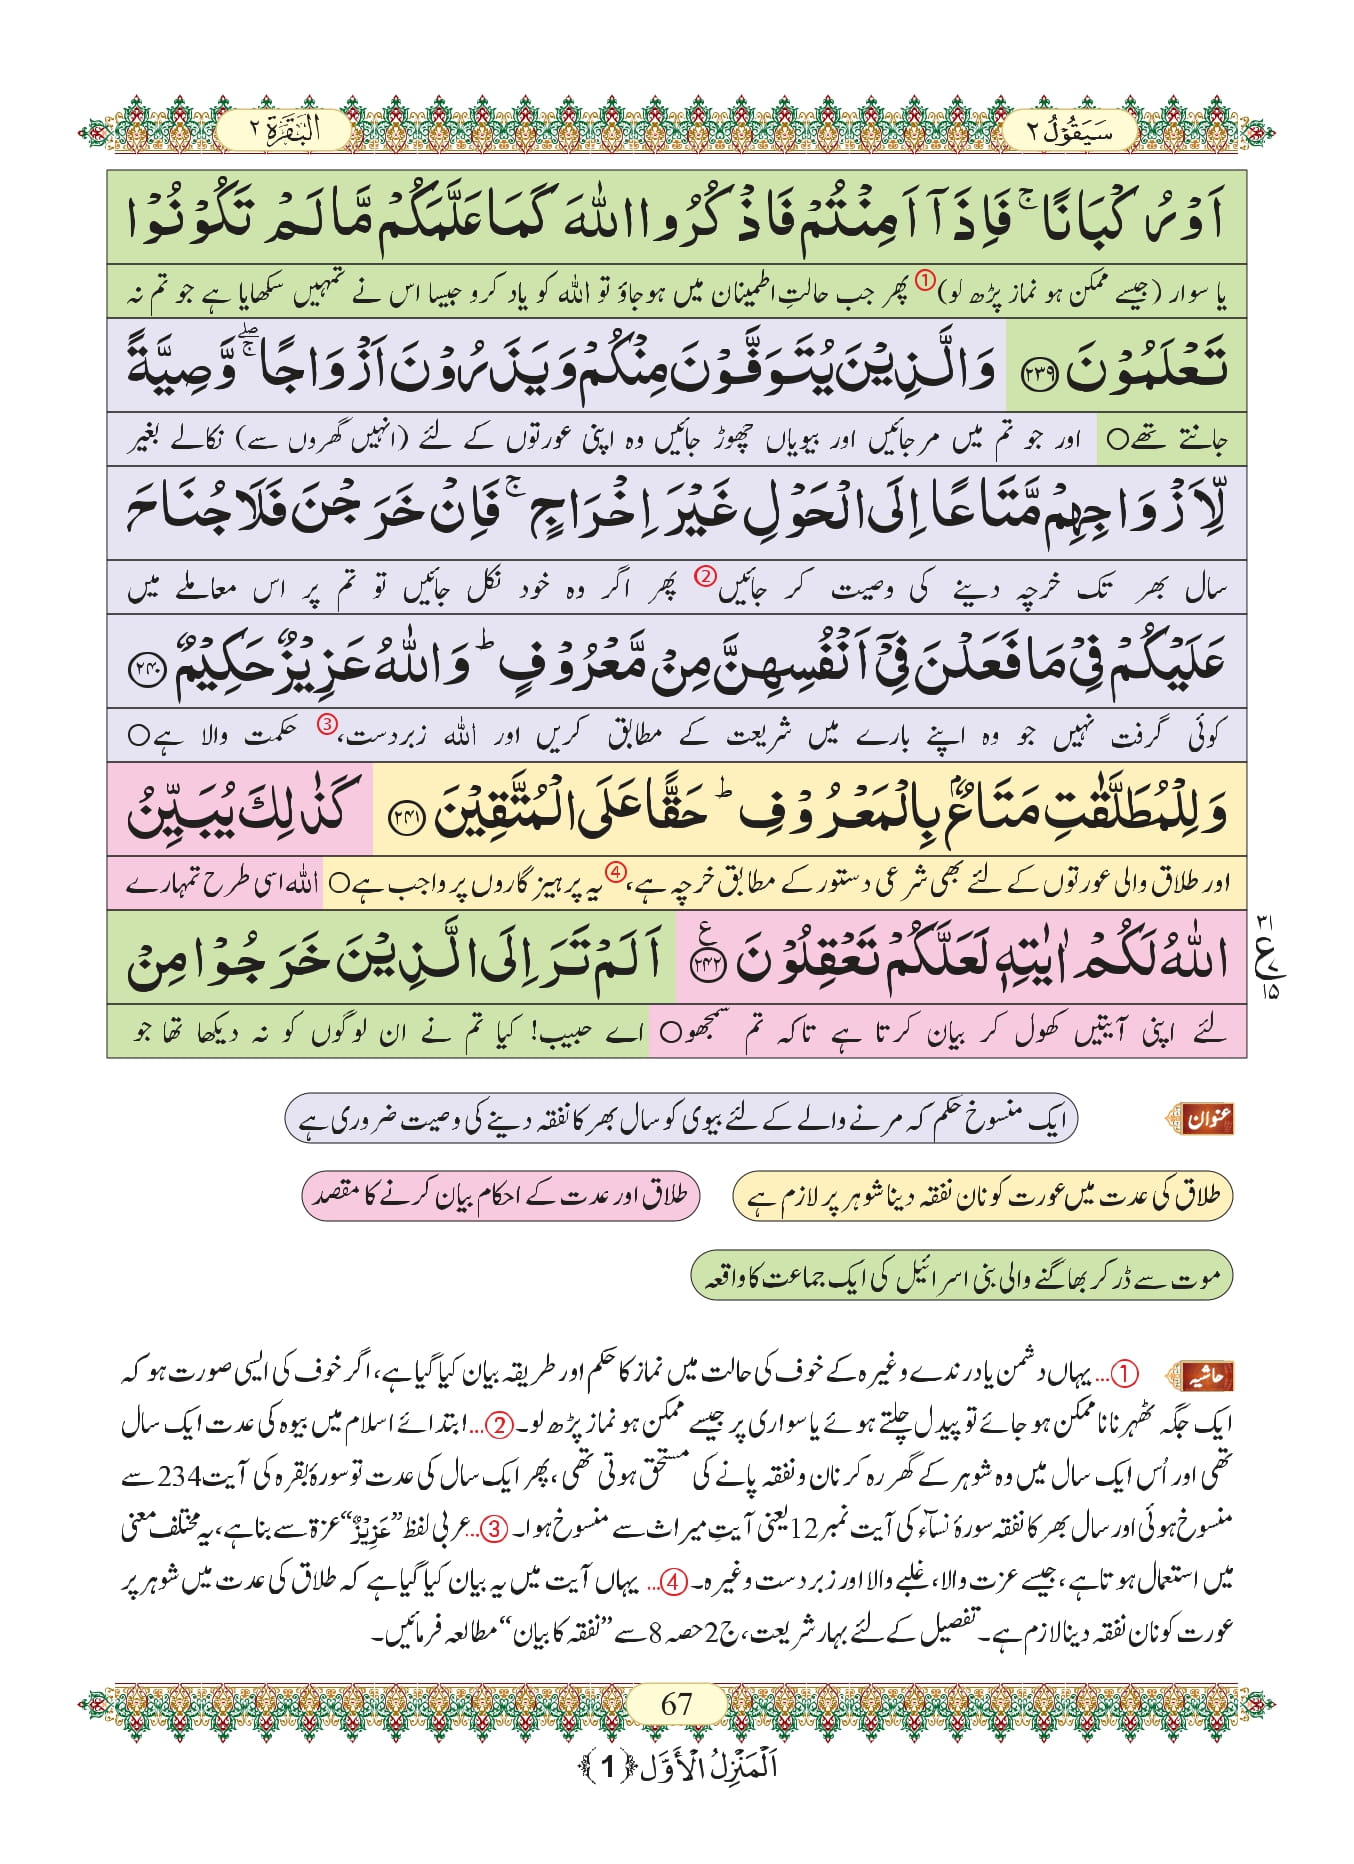 سَيَقُوْلُ ٢
الْبَقَرَة ٢
اَوْ رُكْبَانًا ۚ فَاِذَاۤ اَمِنْتُمْ فَاذْكُرُوا اللّٰهَ كَمَا عَلَّمَكُمْ مَّا لَمْ تَكُوْنُوْا
یا سوار (جیسے ممکن ہو نماز پڑھ لو)① پھر جب حالتِ اطمینان میں ہوجاؤ تو اللہ کو یاد کرو جیسا اس نے تمہیں سکھایا ہے جو تم نہ
تَعْلَمُوْنَ ﴿۲۳۹﴾ وَالَّذِيْنَ يُتَوَفَّوْنَ مِنْكُمْ وَيَذَرُوْنَ اَزْوَاجًا ۖۚ وَّصِيَّةً
جانتے تھے○ اور جو تم میں مرجائیں اور بیویاں چھوڑ جائیں وہ اپنی عورتوں کے لئے (انہیں گھروں سے) نکالے بغیر
لِّاَزْوَاجِهِمْ مَّتَاعًا اِلَى الْحَوْلِ غَيْرَ اِخْرَاجٍ ۚ فَاِنْ خَرَجْنَ فَلَا جُنَاحَ
سال بھر تک خرچہ دینے کی وصیت کر جائیں② پھر اگر وہ خود نکل جائیں تو تم پر اس معاملے میں
عَلَيْكُمْ فِيْ مَا فَعَلْنَ فِيْۤ اَنْفُسِهِنَّ مِنْ مَّعْرُوْفٍ ؕ وَاللّٰهُ عَزِيْزٌ حَكِيْمٌ ﴿۲۴۰﴾
کوئی گرفت نہیں جو وہ اپنے بارے میں شریعت کے مطابق کریں اور اللہ زبردست،③ حکمت والا ہے○
وَلِلْمُطَلَّقٰتِ مَتَاعٌۢ بِالْمَعْرُوْفِ ؕ حَقًّا عَلَى الْمُتَّقِيْنَ ﴿۲۴۱﴾ كَذٰلِكَ يُبَيِّنُ
اور طلاق والی عورتوں کے لئے بھی شرعی دستور کے مطابق خرچہ ہے،④ یہ پرہیزگاروں پر واجب ہے○ اللہ اسی طرح تمہارے
اللّٰهُ لَكُمْ اٰيٰتِهٖ لَعَلَّكُمْ تَعْقِلُوْنَ ﴿۲۴۲﴾ ع اَلَمْ تَرَ اِلَى الَّذِيْنَ خَرَجُوْا مِنْ
۳۱
ع
۱۵
لئے اپنی آیتیں کھول کر بیان کرتا ہے تاکہ تم سمجھو○ اے حبیب! کیا تم نے ان لوگوں کو نہ دیکھا تھا جو
عنوان
ایک منسوخ حکم کہ مرنے والے کے لئے بیوی کو سال بھر کا نفقہ دینے کی وصیت ضروری ہے
طلاق کی عدت میں عورت کو نان نفقہ دینا شوہر پر لازم ہے
طلاق اور عدت کے احکام بیان کرنے کا مقصد
موت سے ڈر کر بھاگنے والی بنی اسرائیل کی ایک جماعت کا واقعہ
حاشیہ
①... یہاں دشمن یا درندے وغیرہ کے خوف کی حالت میں نماز کا حکم اور طریقہ بیان کیا گیا ہے، اگر خوف کی ایسی صورت ہو کہ
ایک جگہ ٹھہرنا ناممکن ہو جائے تو پیدل چلتے ہوئے یا سواری پر جیسے ممکن ہو نماز پڑھ لو۔ ②... ابتدائے اسلام میں بیوہ کی عدت ایک سال
تھی اور اُس ایک سال میں وہ شوہر کے گھر رہ کر نان و نفقہ پانے کی مستحق ہوتی تھی، پھر ایک سال کی عدت تو سورۂ بقرہ کی آیت 234 سے
منسوخ ہوئی اور سال بھر کا نفقہ سورۂ نسآء کی آیت نمبر 12 یعنی آیتِ میراث سے منسوخ ہوا۔ ③... عربی لفظ ”عَزِيْزٌ“ عزۃ سے بنا ہے، یہ مختلف معنی
میں استعمال ہوتا ہے، جیسے عزت والا، غلبے والا اور زبردست وغیرہ۔ ④... یہاں آیت میں یہ بیان کیا گیا ہے کہ طلاق کی عدت میں شوہر پر
عورت کو نان نفقہ دینا لازم ہے۔ تفصیل کے لئے بہار شریعت، ج2 حصہ 8 سے ”نفقہ کا بیان“ مطالعہ فرمائیں۔
67
اَلْمَنْزِلُ الْأَوَّل ﴿1﴾